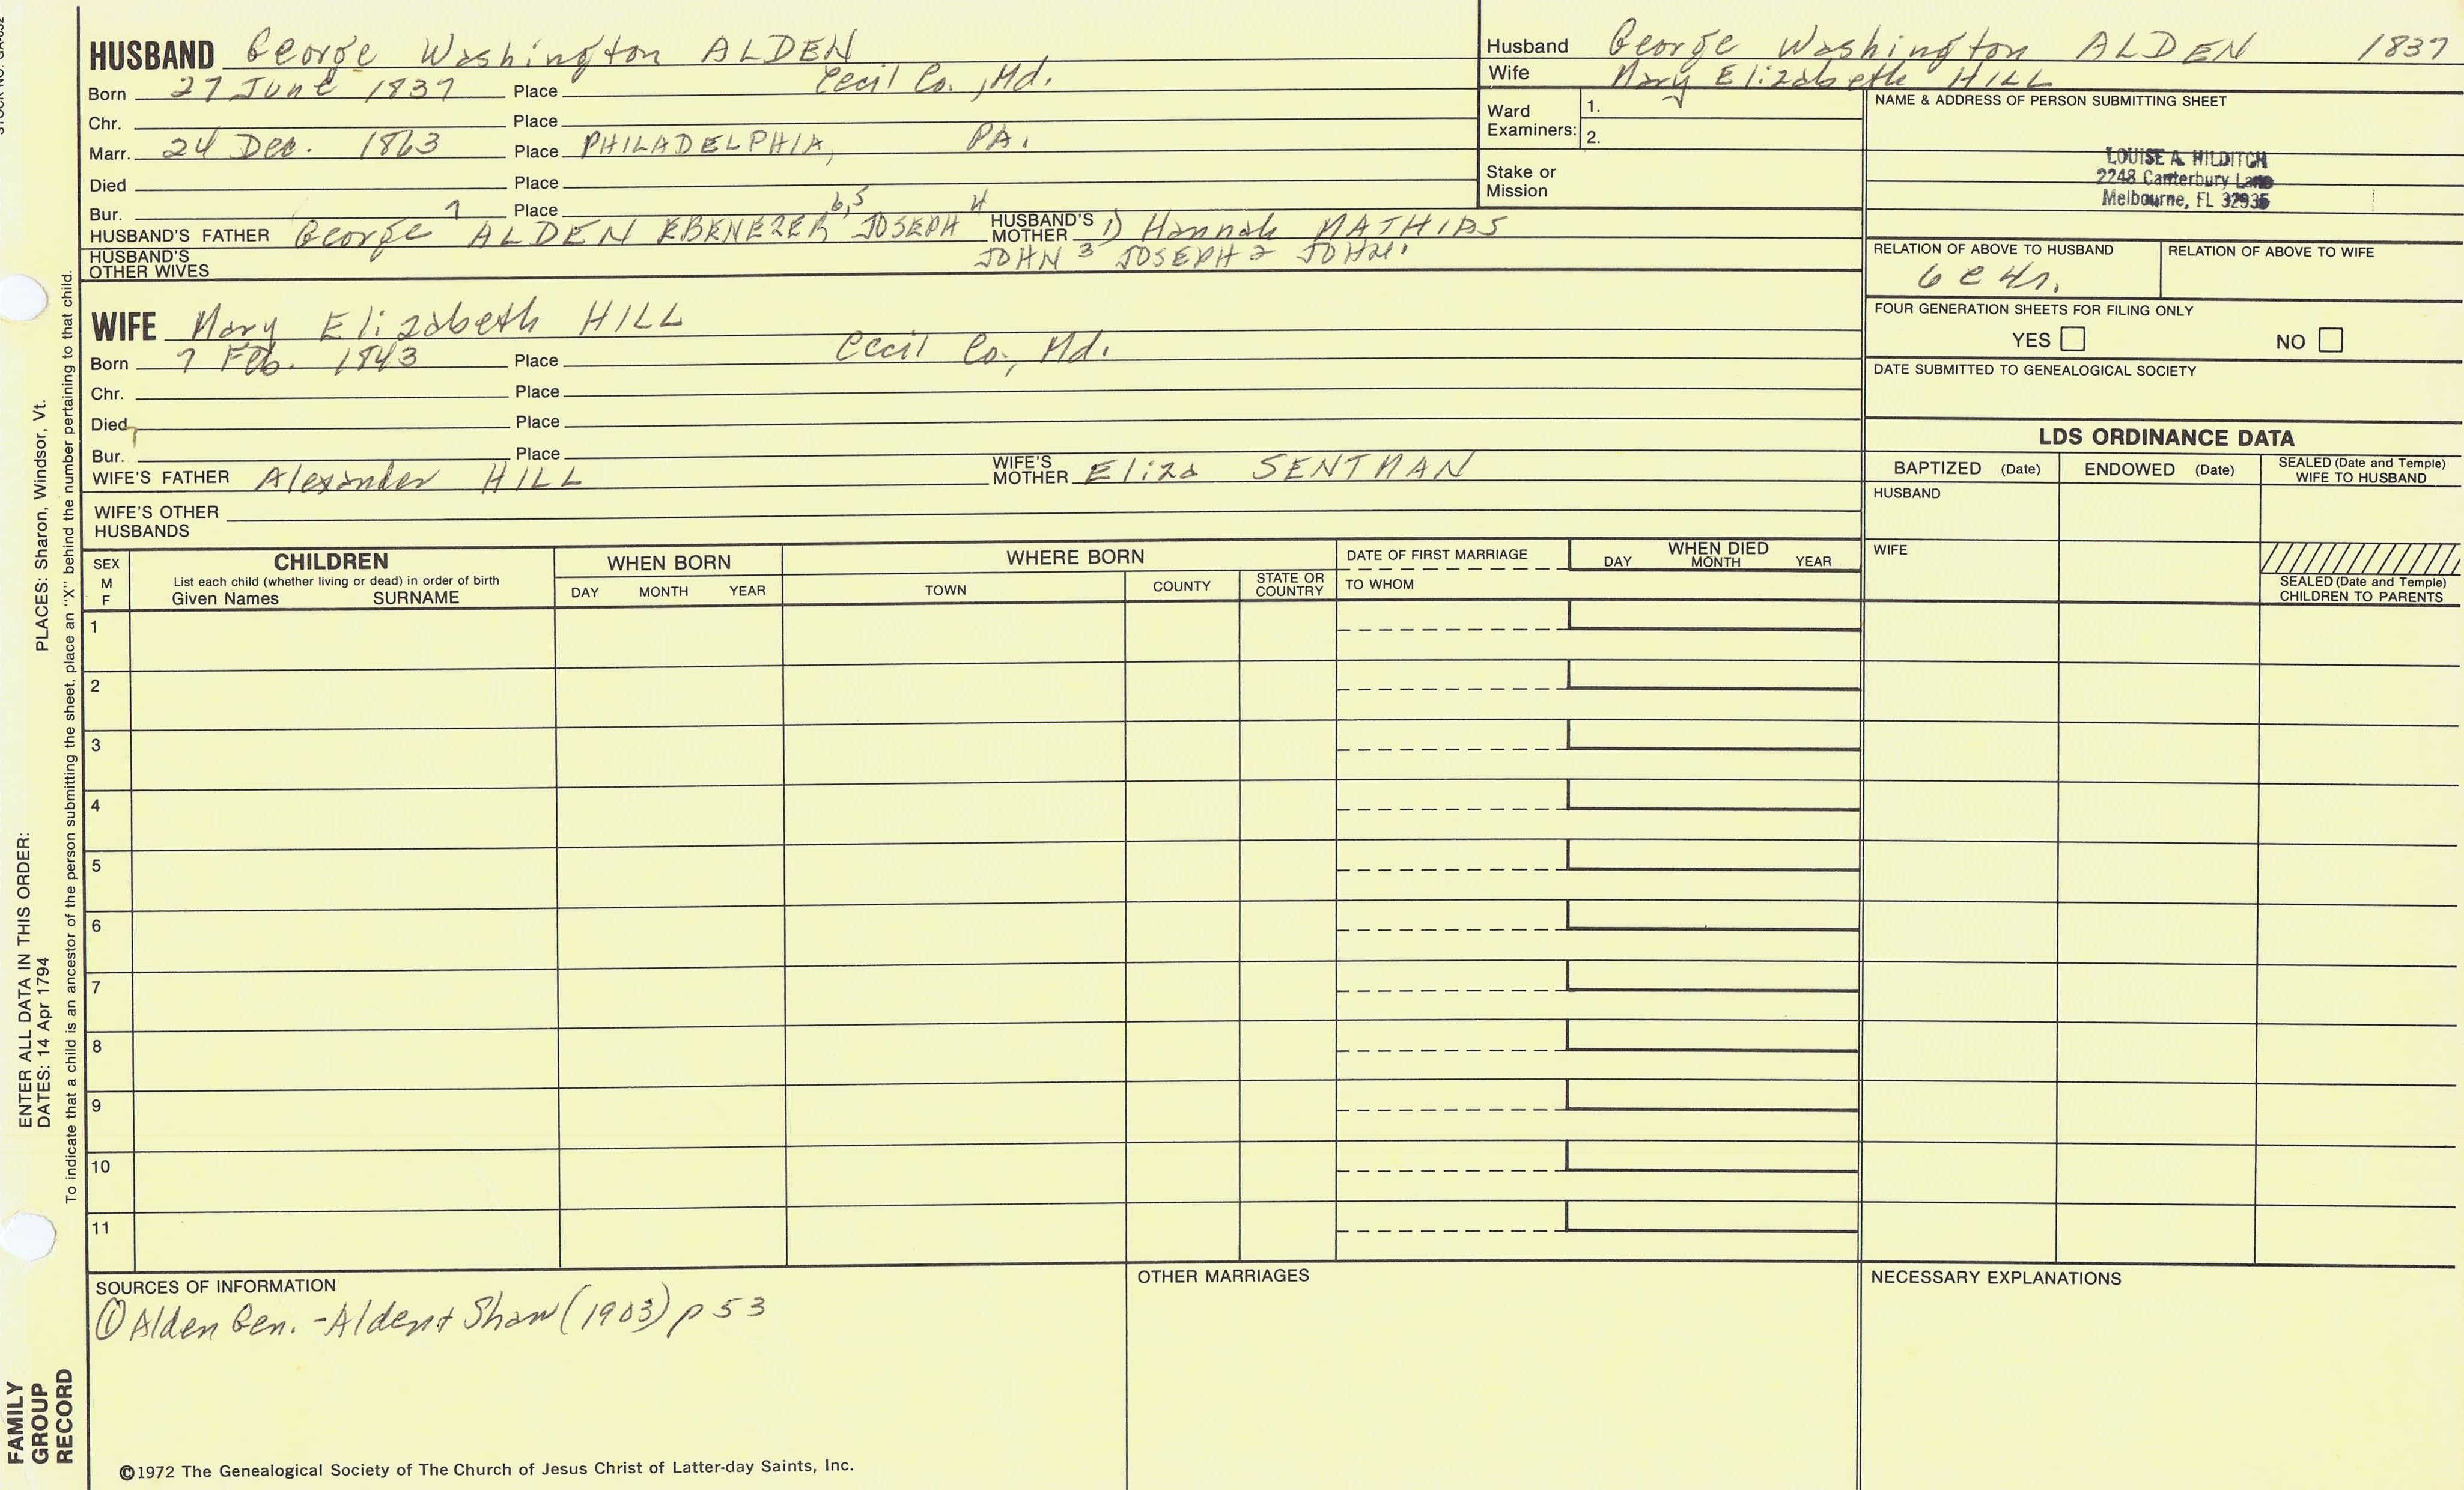 STOCK NO. GA-032
HUSBAND George Washington ALDEN
Born 27 June 1837 Place Cecil Co., Md.
Chr. Place
Marr. 24 Dec. 1863 Place PHILADELPHIA, PA.
Died Place
Bur. Place
HUSBAND'S FATHER George 7 ALDEN EBENEZER 6,5 JOSEPH 4 HUSBAND'S MOTHER 1) Hannah MATHIAS
JOHN 3 JOSEPH 2 JOHN 1
HUSBAND'S OTHER WIVES
WIFE Mary Elizabeth HILL
Born 7 Feb. 1843 Place Cecil Co., Md.
Chr. Place
Died Place
Bur. Place
WIFE'S FATHER Alexander HILL WIFE'S MOTHER Eliza SENTMAN
WIFE'S OTHER HUSBANDS
Husband George Washington ALDEN 1837
Wife Mary Elizabeth HILL
Ward Examiners: 1.
2.
Stake or Mission
NAME & ADDRESS OF PERSON SUBMITTING SHEET
LOUISE A. HILDITCH
2248 Canterbury Lane
Melbourne, FL 32935
RELATION OF ABOVE TO HUSBAND RELATION OF ABOVE TO WIFE
6 c 4r.
FOUR GENERATION SHEETS FOR FILING ONLY
YES NO
DATE SUBMITTED TO GENEALOGICAL SOCIETY
LDS ORDINANCE DATA
BAPTIZED (Date) ENDOWED (Date) SEALED (Date and Temple) WIFE TO HUSBAND
HUSBAND
WIFE
SEALED (Date and Temple) CHILDREN TO PARENTS
SEX M F
CHILDREN
List each child (whether living or dead) in order of birth
Given Names SURNAME
WHEN BORN
DAY MONTH YEAR
WHERE BORN
TOWN COUNTY STATE OR COUNTRY
DATE OF FIRST MARRIAGE
TO WHOM
WHEN DIED
DAY MONTH YEAR
1
2
3
4
5
6
7
8
9
10
11
SOURCES OF INFORMATION
① Alden Gen. - Alden + Shaw (1903) p 53
OTHER MARRIAGES
NECESSARY EXPLANATIONS
©1972 The Genealogical Society of The Church of Jesus Christ of Latter-day Saints, Inc.
FAMILY
GROUP
RECORD
ENTER ALL DATA IN THIS ORDER:
DATES: 14 Apr 1794
PLACES: Sharon, Windsor, Vt.
To indicate that a child is an ancestor of the person submitting the sheet, place an "X" behind the number pertaining to that child.